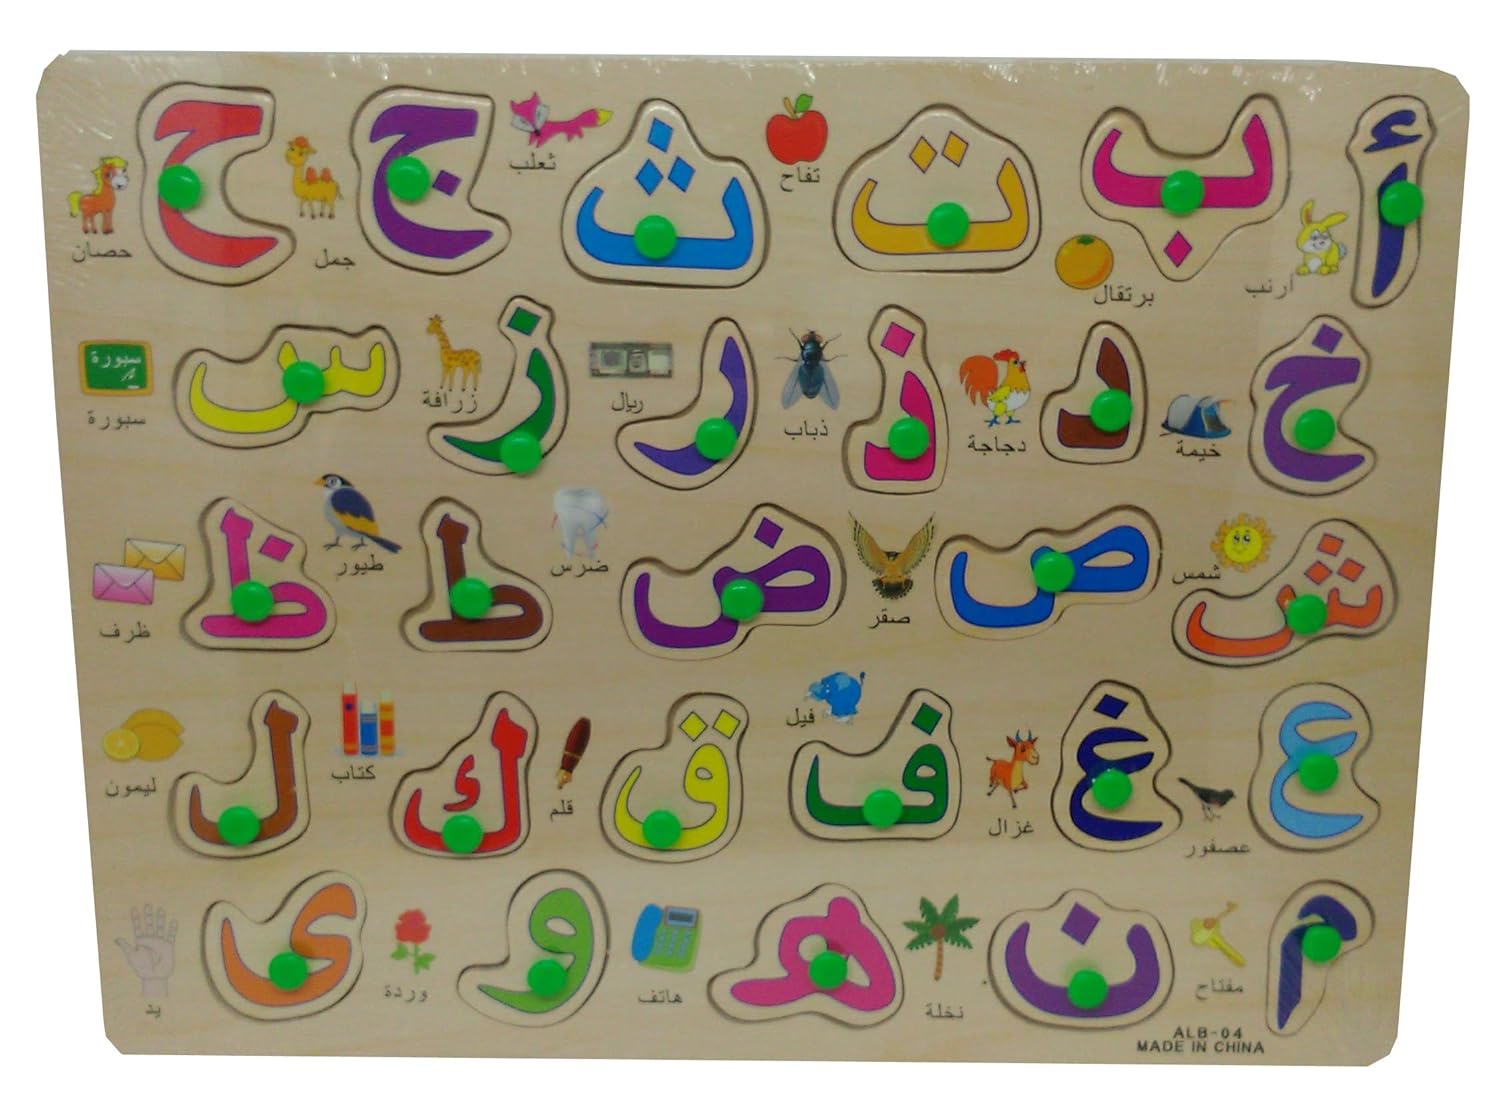 أ ب ت ث ج ح
ارنب برتقال تفاح ثعلب جمل حصان
خ د ذ ر ز س
سبورة
خيمة دجاجة ذباب ريال زرافة سبورة
ش ص ض ط ظ
شمس صقر ضرس طيور ظرف
ع غ ف ق ك ل
عصفور غزال فيل قلم كتاب ليمون
م ن ه و ى
مفتاح نخلة هاتف وردة يد
ALB-04
MADE IN CHINA